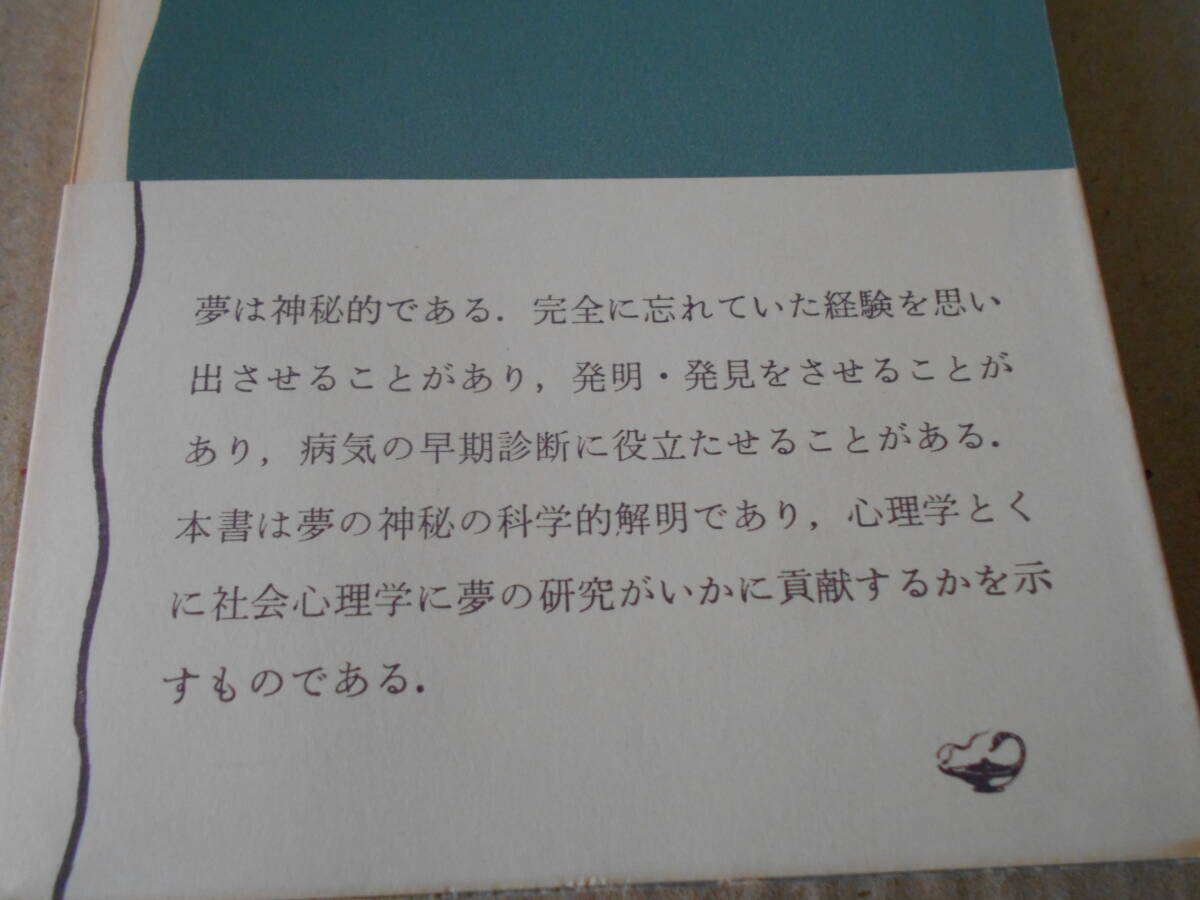 夢は神秘的である．完全に忘れていた経験を思い
出させることがあり，発明・発見をさせることが
あり，病気の早期診断に役立たせることがある．
本書は夢の神秘の科学的解明であり，心理学とく
に社会心理学に夢の研究がいかに貢献するかを示
すものである．